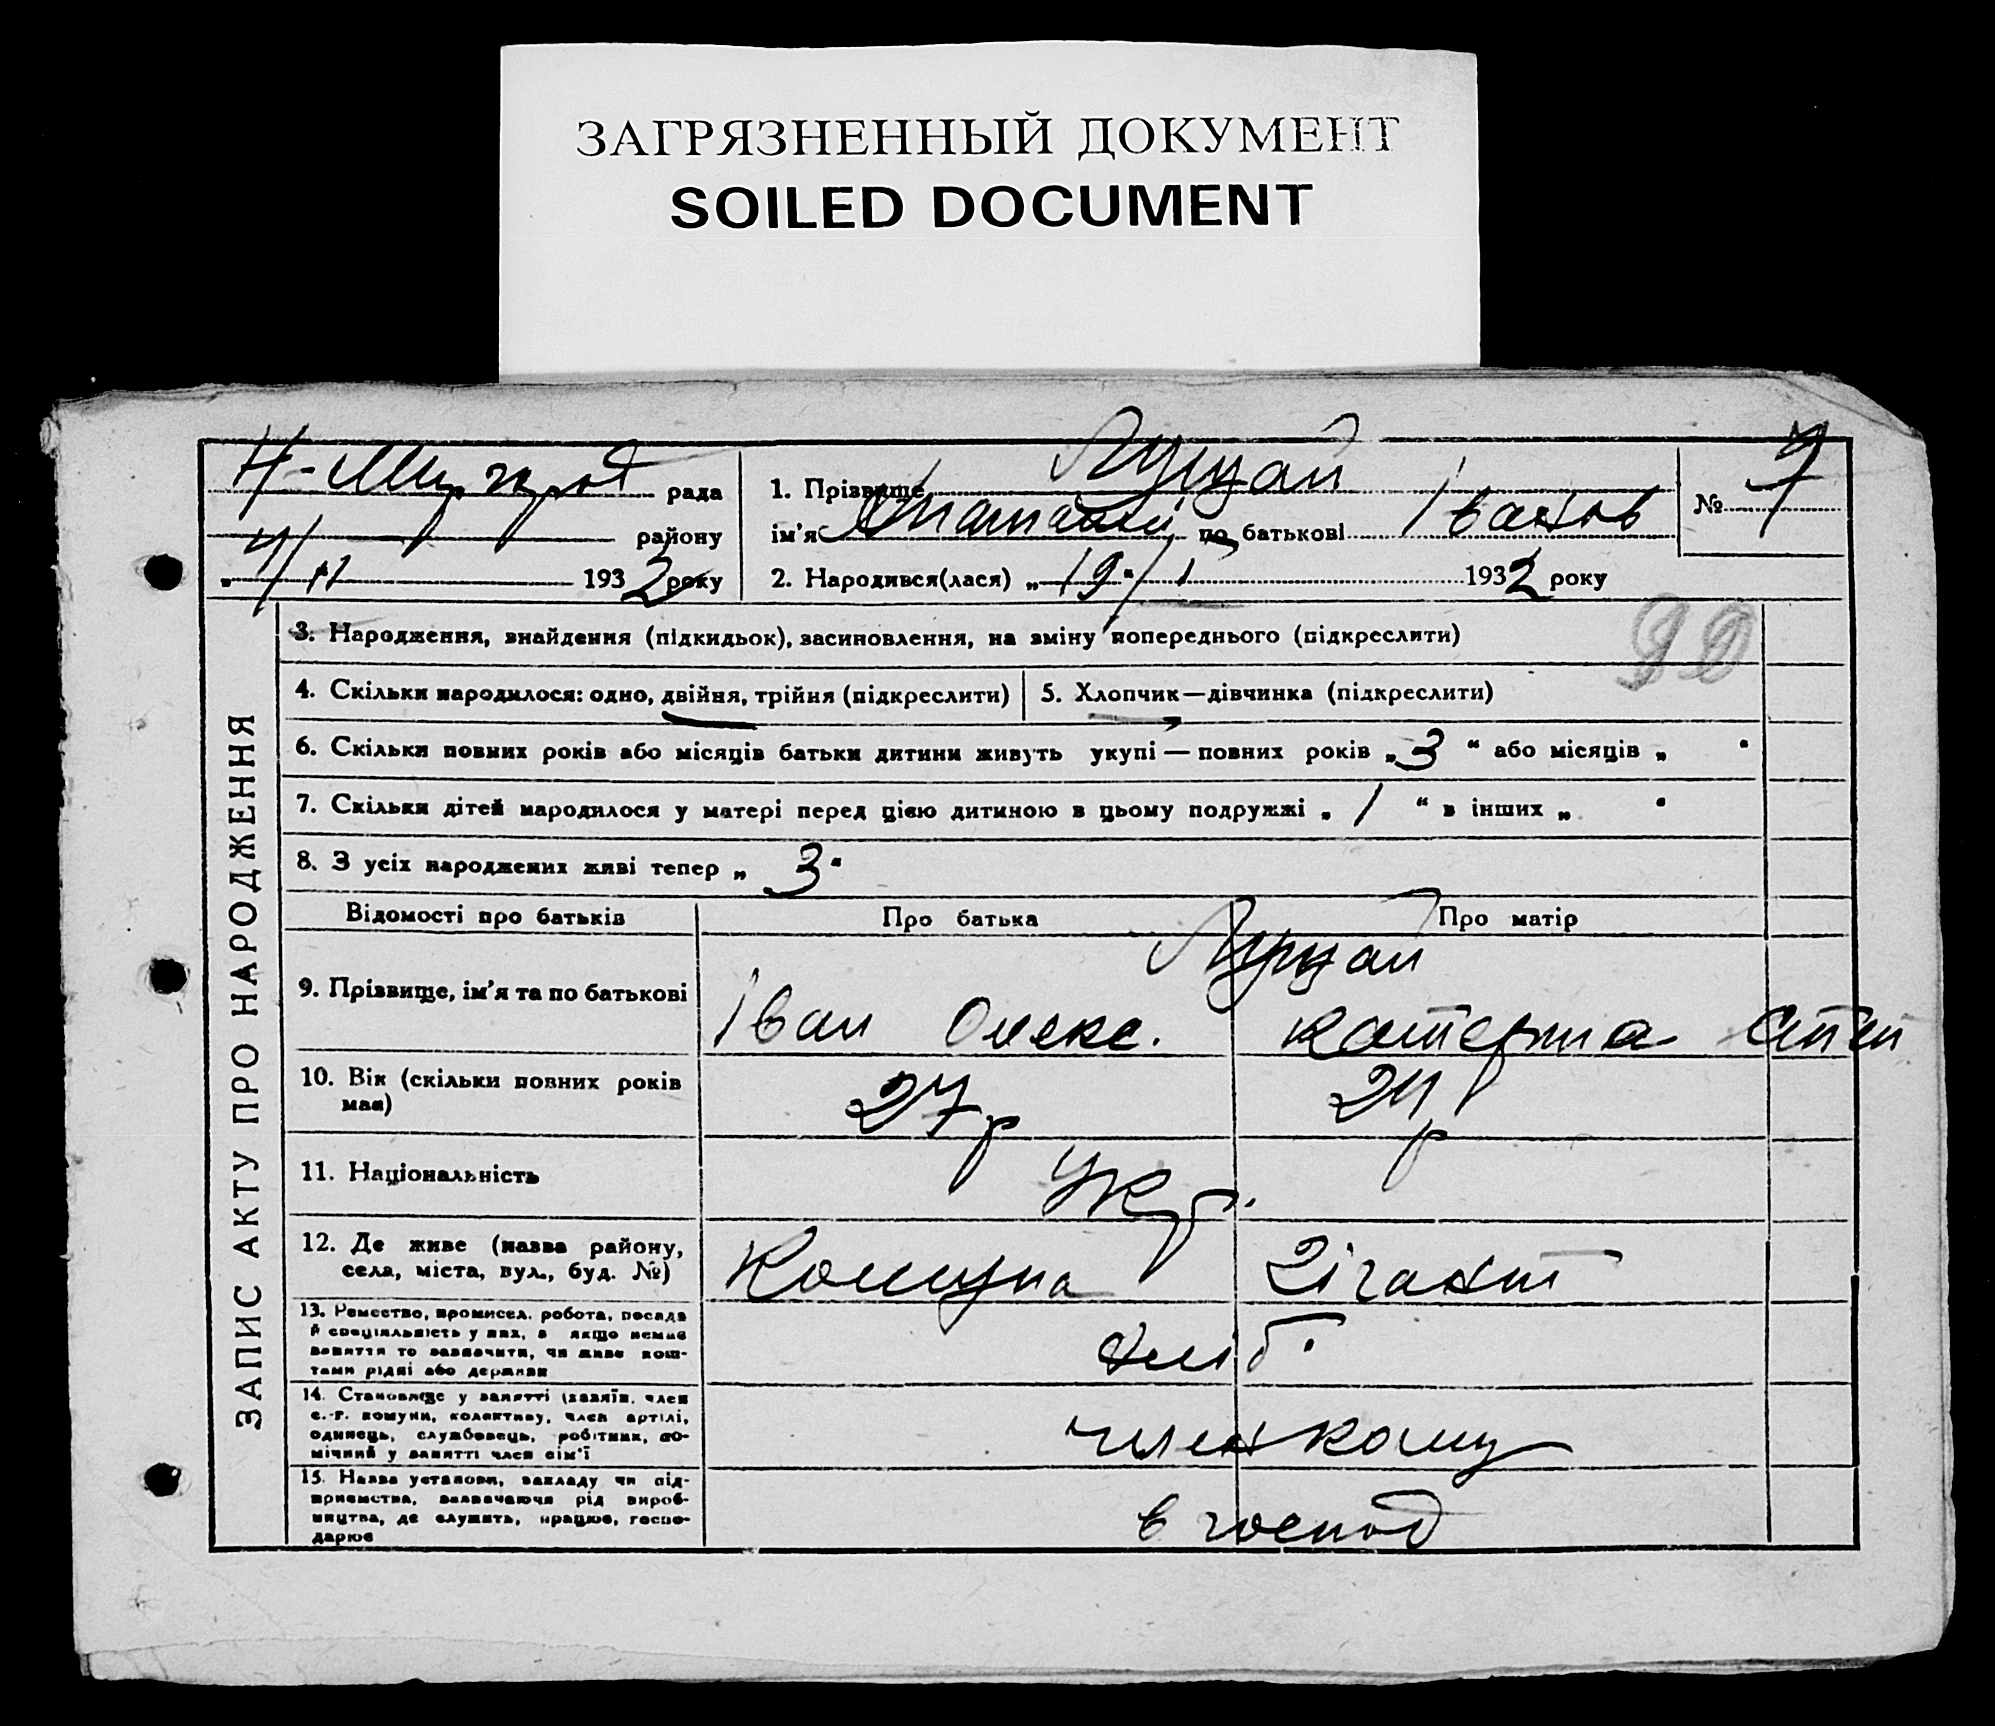 ЗАГРЯЗНЕННЫЙ ДОКУМЕНТ
SOILED DOCUMENT
Н-Миргород рада
району
4/II 1932 року
1. Прізвище
ім'я Анатолій по батькові Іванов
2. Народився(лася) „19“/I 1932 року
№ 7
ЗАПИС АКТУ ПРО НАРОДЖЕННЯ
3. Народження, знайдення (підкидьок), засиновлення, на зміну попереднього (підкреслити)
4. Скільки народилося: одно, двійня, трійня (підкреслити)
5. Хлопчик—дівчинка (підкреслити)
6. Скільки повних років або місяців батьки дитини живуть укупі — повних років „3“ або місяців „ “
7. Скільки дітей народилося у матері перед цією дитиною в цьому подружжі „1“ в інших „ “
8. З усіх народжених живі тепер „3“
Відомості про батьків Про батька Про матір
9. Прізвище, ім'я та по батькові
Іван Олекс. Катерина Степ
10. Вік (скільки повних років
має)
27 р 24 р
11. Національність Укр.
12. Де живе (назва району,
села, міста, вул., буд. №)
Комуна Гігант
13. Ремество, промисел, робота, посада
й спеціяльність у них, а якщо немає
заняття то зазначити, чи живе кош-
тами рідні або держави
хліб.
14. Становище у занятті (хазяїн, член
с.-г. комуни, колективу, член артілі,
одинець, службовець, робітник, по-
мічний у занятті член сім'ї
член кому
15. Назва установи, закладу чи під-
приємства, зазначаючи рід вироб-
ництва, де служить, працює, госпо-
дарює
в господ